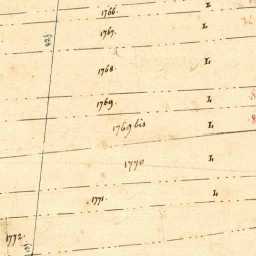 1766. L
1767. L
1768. L
1769. L
1769 bis L
1770 L
1771. L
1772.